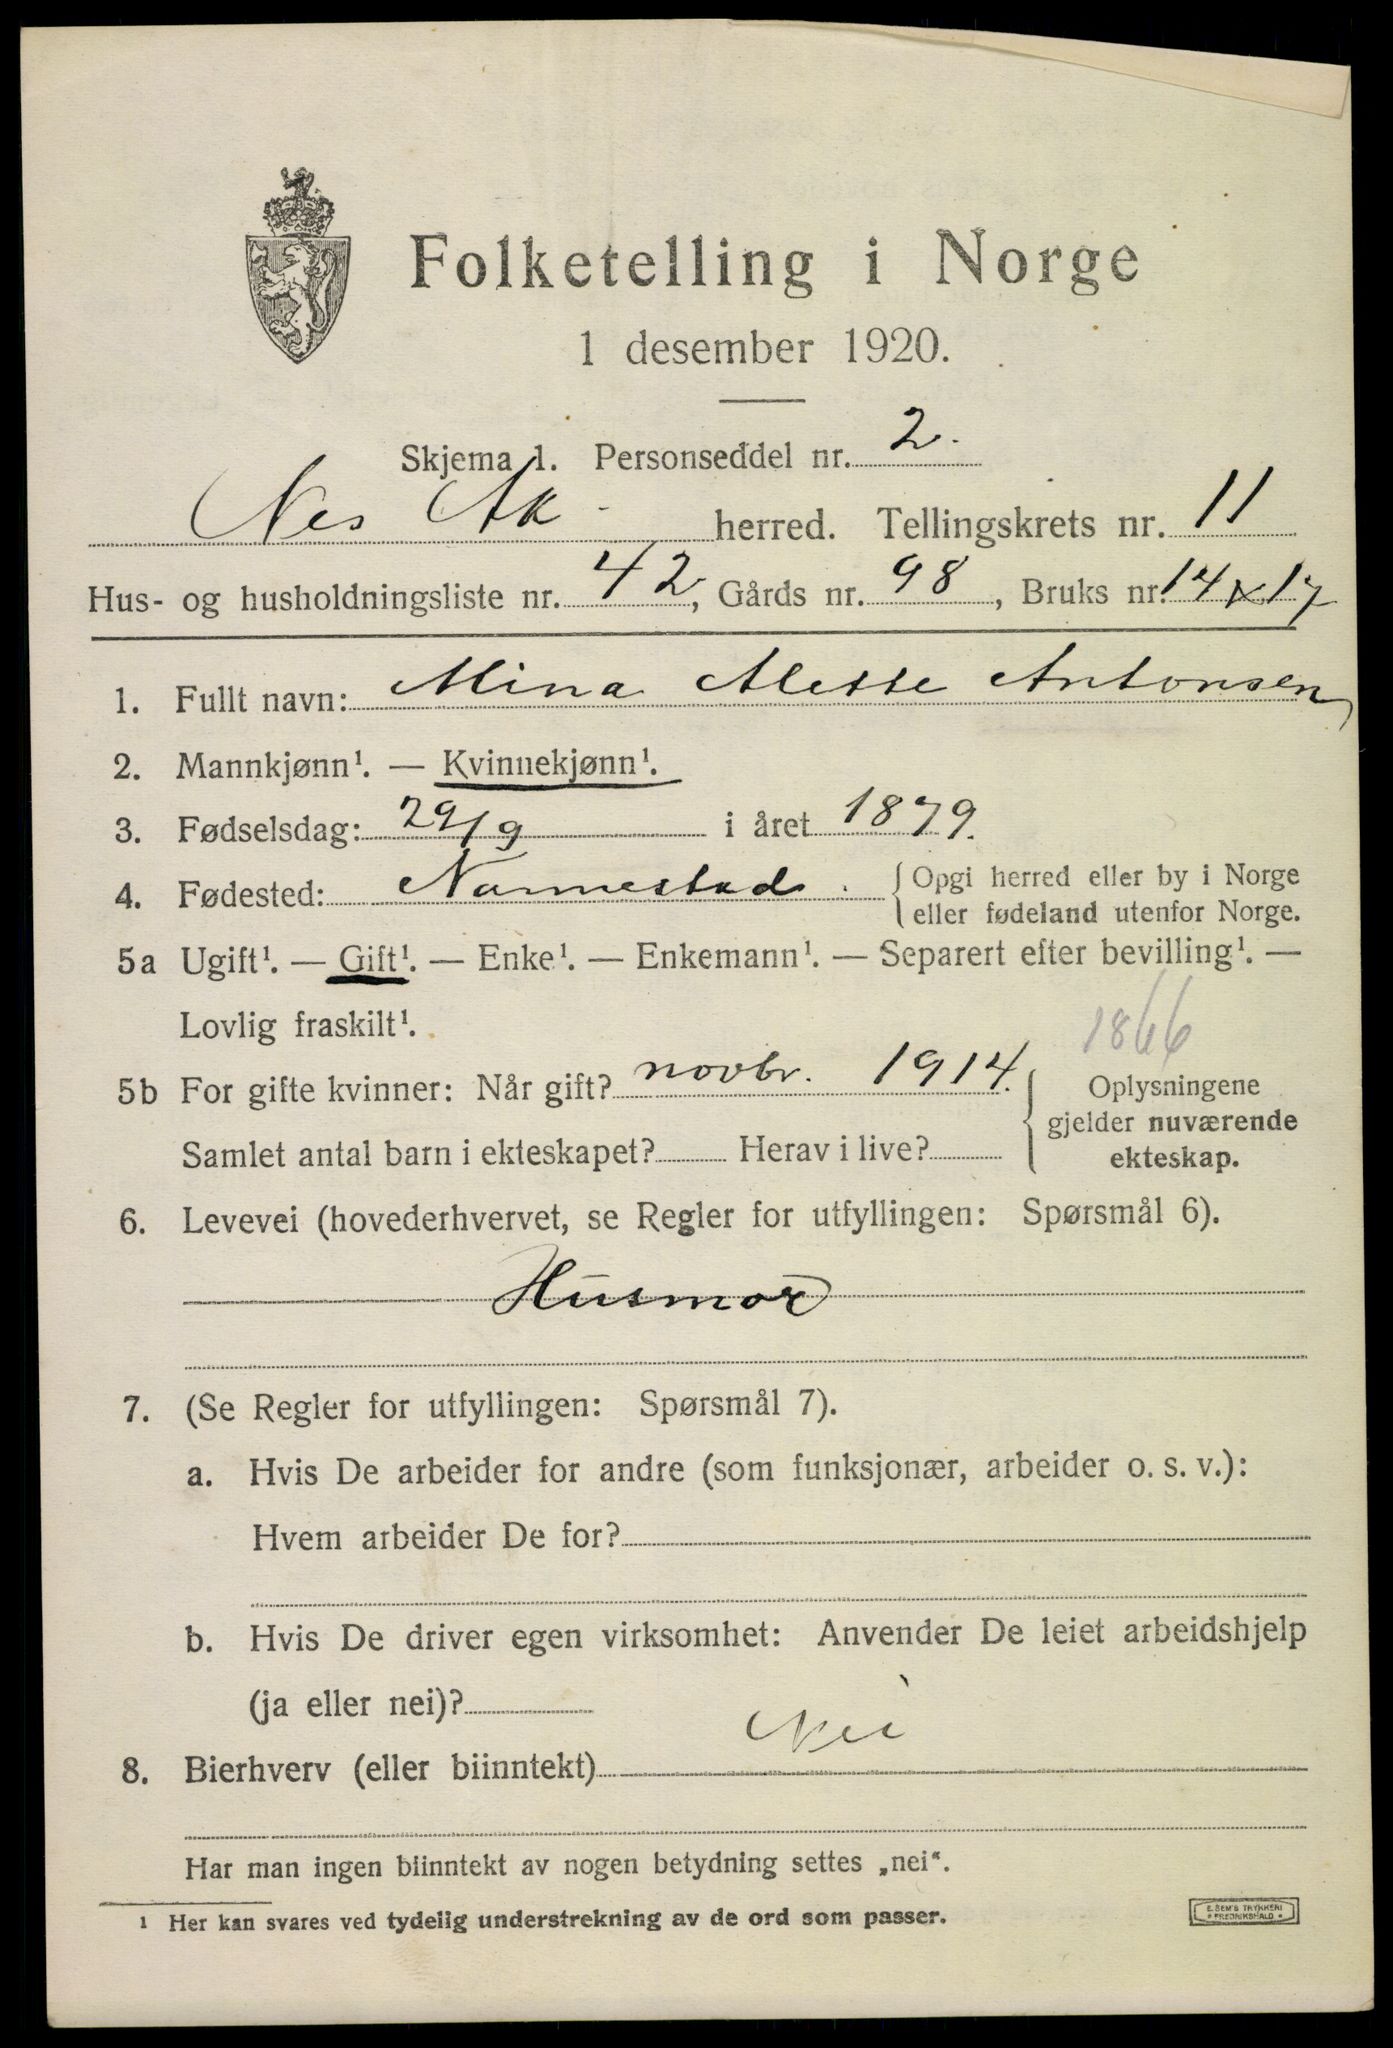 Folketelling i Norge
1 desember 1920.
Skjema 1. Personseddel nr. 2.
Nes Ak herred. Tellingskrets nr. 11
Hus- og husholdningsliste nr. 42, Gårds nr. 98, Bruks nr. 14 x 17
1. Fullt navn: Mina Alette Antonsen
2. Mannkjønn¹. — Kvinnekjønn¹.
3. Fødselsdag: 29/9 i året 1879.
4. Fødested: Nannestad. {Opgi herred eller by i Norge
eller fødeland utenfor Norge.
5a Ugift¹. — Gift¹. — Enke¹. — Enkemann¹. — Separert efter bevilling¹. —
Lovlig fraskilt¹.
1866
5b For gifte kvinner: Når gift? novbr. 1914. { Oplysningene
gjelder nuværende
Samlet antal barn i ekteskapet? Herav i live? ekteskap.
6. Levevei (hovederhvervet, se Regler for utfyllingen: Spørsmål 6).
Husmor
7. (Se Regler for utfyllingen: Spørsmål 7).
a. Hvis De arbeider for andre (som funksjonær, arbeider o. s. v.):
Hvem arbeider De for?
b. Hvis De driver egen virksomhet: Anvender De leiet arbeidshjelp
(ja eller nei)?
8. Bierhverv (eller biinntekt) Nei
Har man ingen biinntekt av nogen betydning settes „nei“.
¹ Her kan svares ved tydelig understrekning av de ord som passer.
E. SEM'S TRYKKERI
• FREDRIKSHALD •